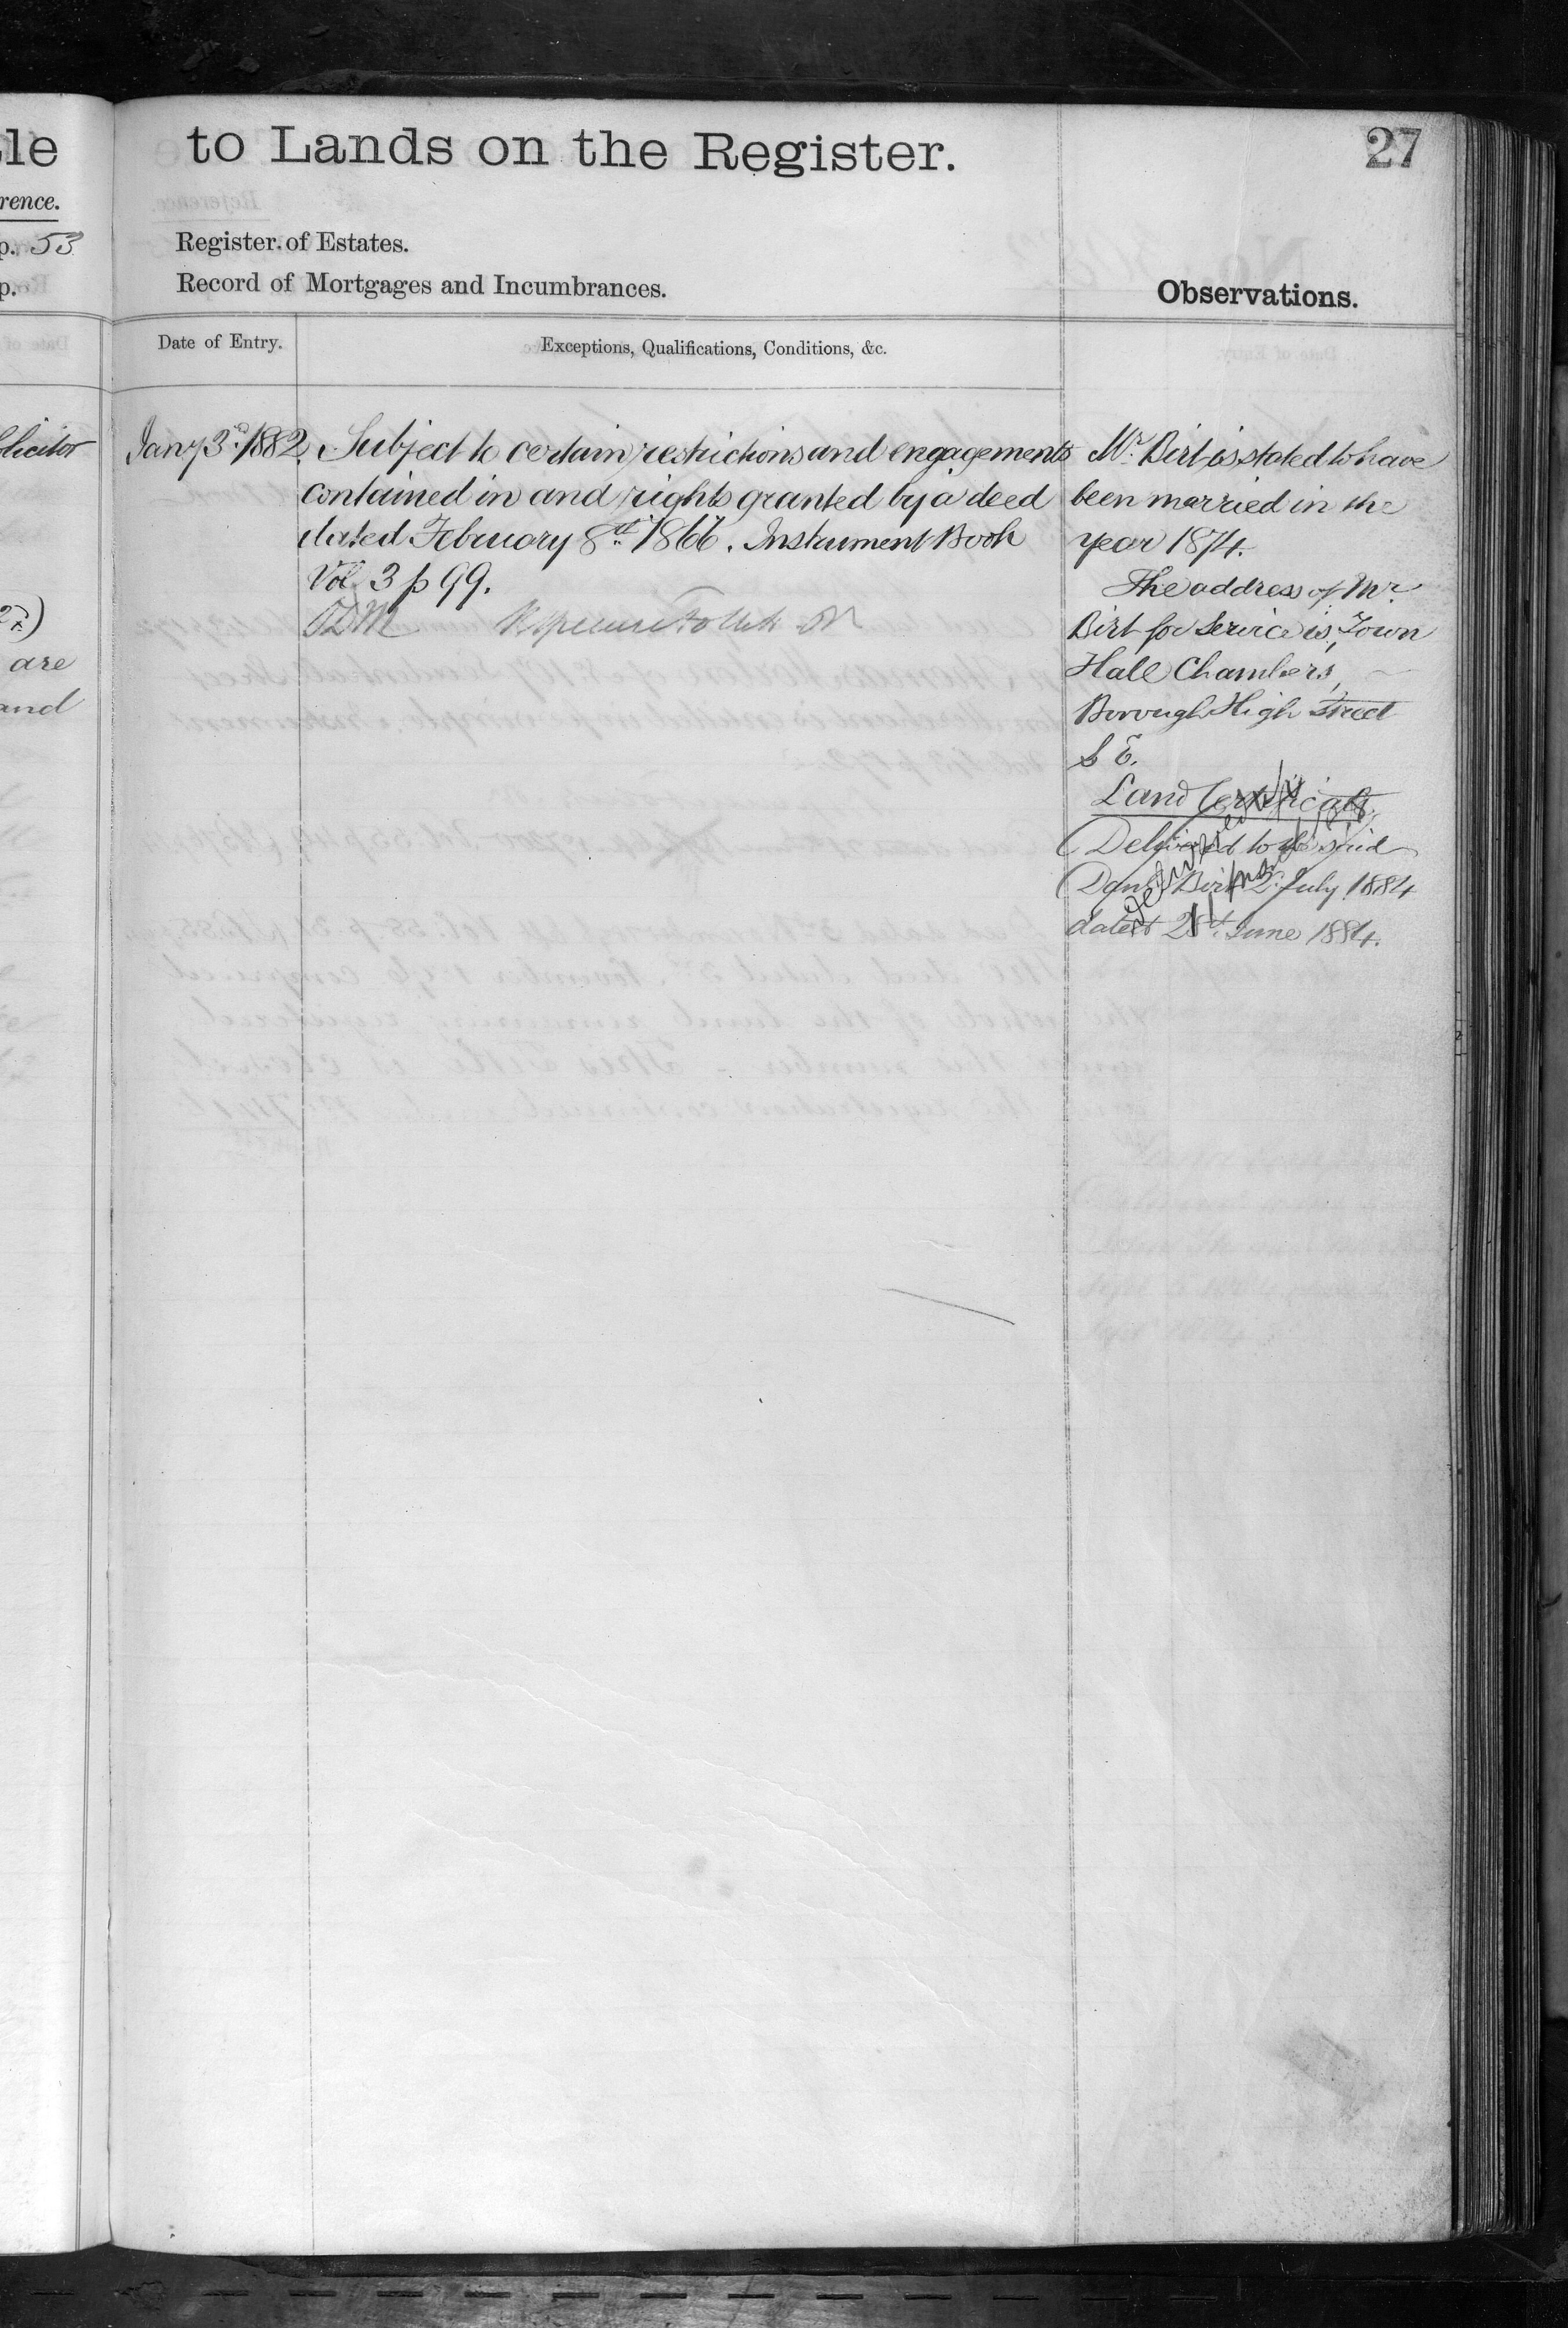 le
rence.
p. 53
p.
licitor
27)
are
and
to Lands on the Register.
27
Register of Estates.
Record of Mortgages and Incumbrances.
Observations.
Date of Entry.
Exceptions, Qualifications, Conditions, &c.
Jany 3rd 1882.
Subject to certain restrictions and engagements
contained in and rights granted by a deed
dated February 8th 1866. Instrument Book
Vol 3 p 99.
Mr. Birt is stated to have
been married in the
year 1874.
The address of Mr.
Birt for Service is, Town
Hall Chambers,
Borough High Street
S E.
Land Certificate.
Delivered to the said
Danl Birt 2d July 1884
dated 28th June 1884.